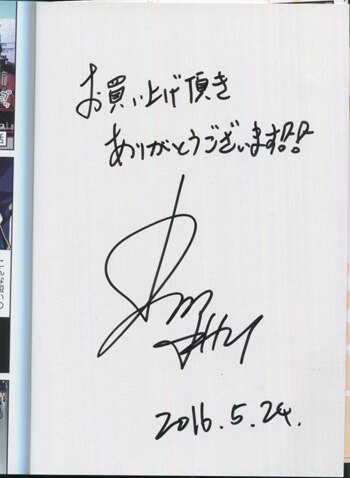 お買い上げ頂き
ありがとうございます!!
2016.5.24.
こんな短い